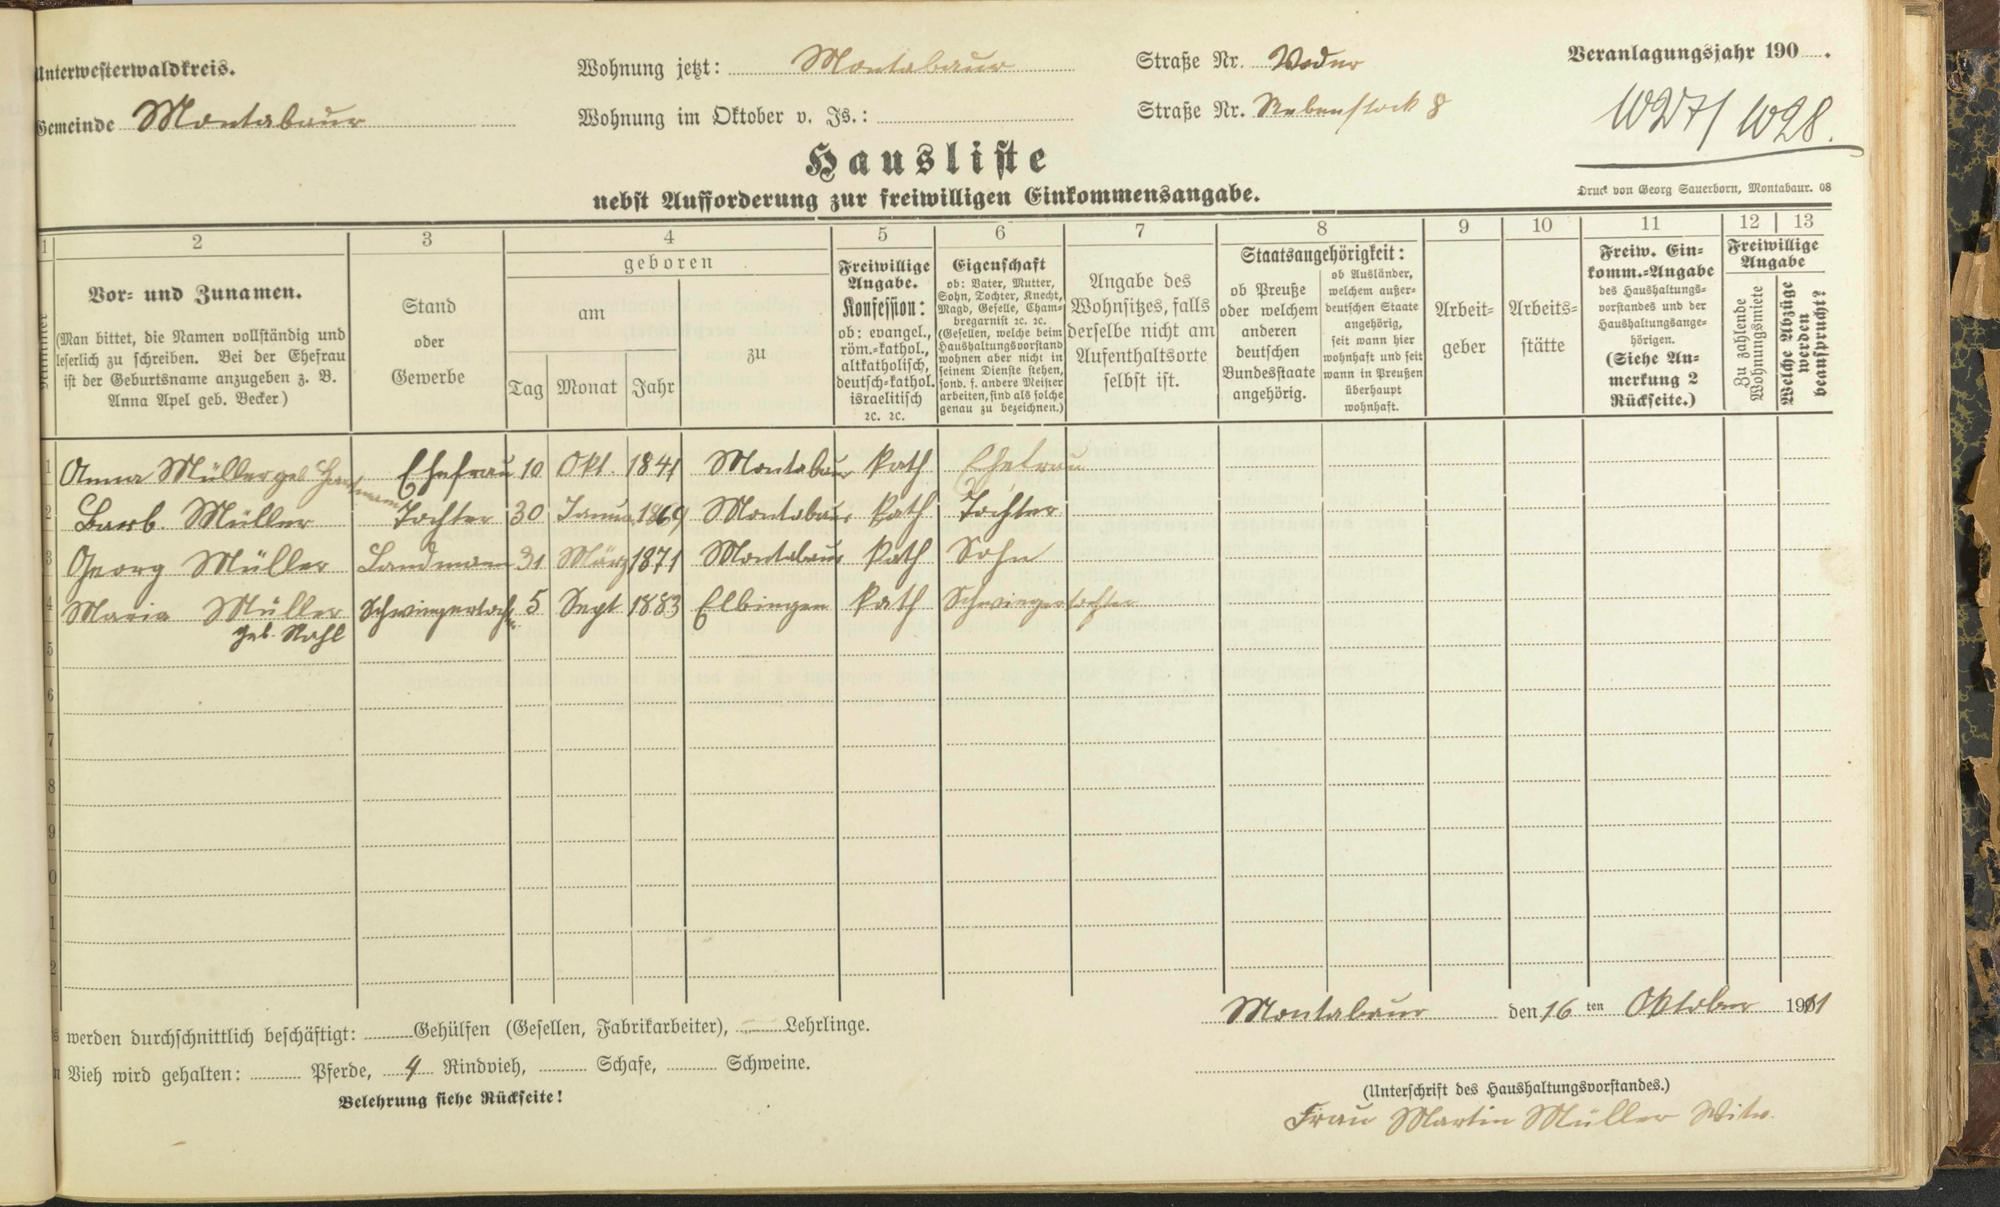 Unterwesterwaldkreis.
Wohnung jetzt: Montabaur
Straße Nr. Voder
Veranlagungsjahr 190 .
Gemeinde Montabaur
Wohnung im Oktober v. Js.:
Straße Nr. Rebenstock 8
1027/1028.
Hausliste
nebst Aufforderung zur freiwilligen Einkommensangabe.
Druck von Georg Sauerborn, Montabaur. 08
1 2 3 4 5 6 7 8 9 10 11 12 13
Nummer
Vor- und Zunamen.
(Man bittet, die Namen vollständig und
leserlich zu schreiben. Bei der Ehefrau
ist der Geburtsname anzugeben z. B.
Anna Apel geb. Becker.)
Stand
oder
Gewerbe
geboren
am
Tag Monat Jahr
zu
Freiwillige
Angabe.
Konfession:
ob: evangel.,
röm.-kathol.,
altkatholisch,
deutsch-kathol.
israelitisch
ꝛc. ꝛc.
Eigenschaft
ob: Vater, Mutter,
Sohn, Tochter, Knecht,
Magd, Geselle, Cham-
bregarnist ꝛc. ꝛc.
(Gesellen, welche beim
Haushaltungsvorstand
wohnen aber nicht in
seinem Dienste stehen,
sond. f. andere Meister
arbeiten, sind als solche
genau zu bezeichnen.)
Angabe des
Wohnsitzes, falls
derselbe nicht am
Aufenthaltsorte
selbst ist.
Staatsangehörigkeit:
ob Preuße
oder welchem
anderen
deutschen
Bundesstaate
angehörig.
ob Ausländer,
welchem außer-
deutschen Staate
angehörig,
seit wann hier
wohnhaft und seit
wann in Preußen
überhaupt
wohnhaft.
Arbeit-
geber
Arbeits-
stätte
Freiw. Ein-
komm.-Angabe
des Haushaltungs-
vorstandes und der
Haushaltungsange-
hörigen.
(Siehe An-
merkung 2
Rückseite.)
Freiwillige
Angabe
Zu zahlende
Wohnungsmiete
Welche Abzüge
werden
beansprucht?
1 Anna Müller geb Hartmann Ehefrau 10 Okt. 1841 Montabaur kath Ehefrau
2 Barb. Müller Tochter 30 Januar 1869 Montabaur kath Tochter
3 Georg Müller Landmann 31 März 1871 Montabaur kath Sohn
4 Maria Müller Schwiegertochter 5 Sept 1883 Elbingen kath Schwiegertochter
geb. Nohl
5
6
7
8
9
0
1
2
Montabaur den 16 ten Oktober 1911
s werden durchschnittlich beschäftigt: Gehülfen (Gesellen, Fabrikarbeiter), Lehrlinge.
n Vieh wird gehalten: Pferde, 4 Rindvieh, Schafe, Schweine.
Belehrung siehe Rückseite!
(Unterschrift des Haushaltungsvorstandes.)
Frau Martin Müller Witw.